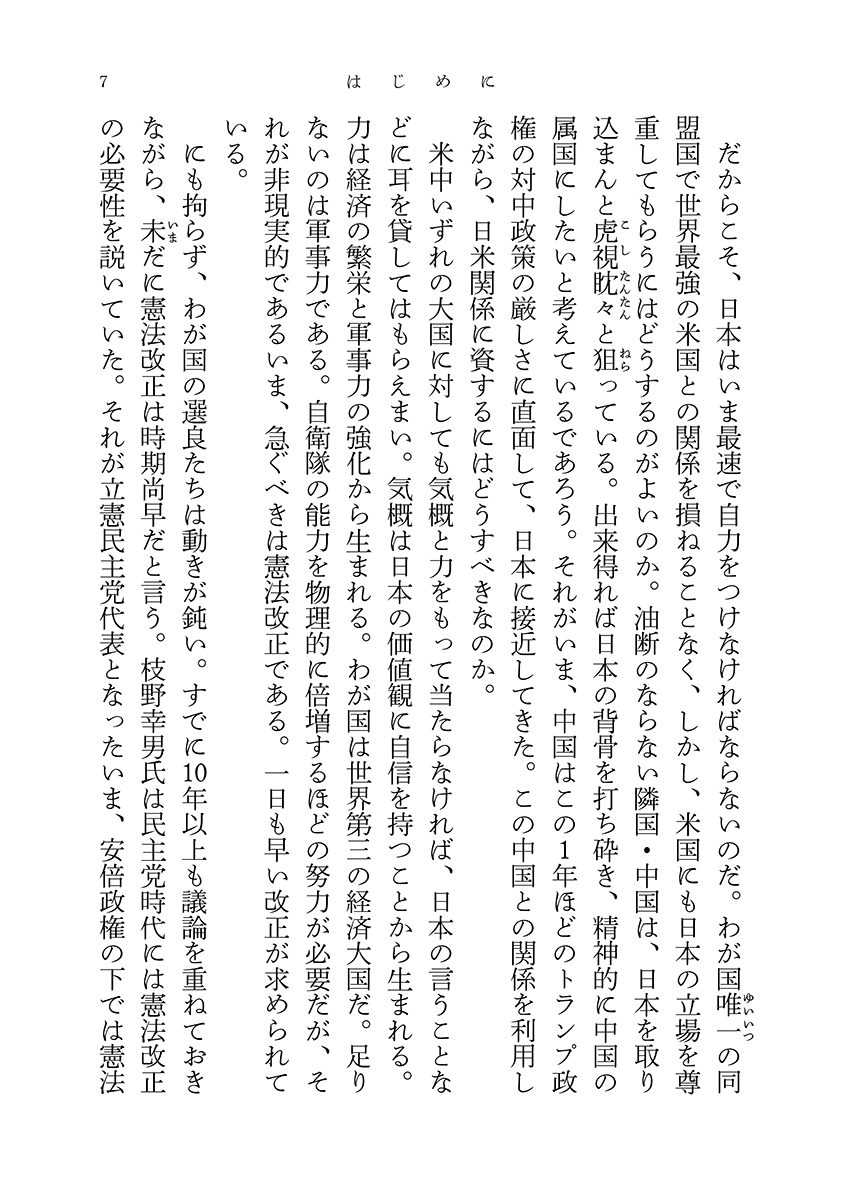 7
はじめに
だからこそ、日本はいま最速で自力をつけなければならないのだ。わが国唯一の同
ゆいいつ
盟国で世界最強の米国との関係を損ねることなく、しかし、米国にも日本の立場を尊
重してもらうにはどうするのがよいのか。油断のならない隣国・中国は、日本を取り
込まんと虎視眈々と狙っている。出来得れば日本の背骨を打ち砕き、精神的に中国の
こしたんたん
ねら
属国にしたいと考えているであろう。それがいま、中国はこの1年ほどのトランプ政
権の対中政策の厳しさに直面して、日本に接近してきた。この中国との関係を利用し
ながら、日米関係に資するにはどうすべきなのか。
米中いずれの大国に対しても気概と力をもって当たらなければ、日本の言うことな
どに耳を貸してはもらえまい。気概は日本の価値観に自信を持つことから生まれる。
力は経済の繁栄と軍事力の強化から生まれる。わが国は世界第三の経済大国だ。足り
ないのは軍事力である。自衛隊の能力を物理的に倍増するほどの努力が必要だが、そ
れが非現実的であるいま、急ぐべきは憲法改正である。一日も早い改正が求められて
いる。
にも拘らず、わが国の選良たちは動きが鈍い。すでに10年以上も議論を重ねておき
ながら、未だに憲法改正は時期尚早だと言う。枝野幸男氏は民主党時代には憲法改正
いま
の必要性を説いていた。それが立憲民主党代表となったいま、安倍政権の下では憲法